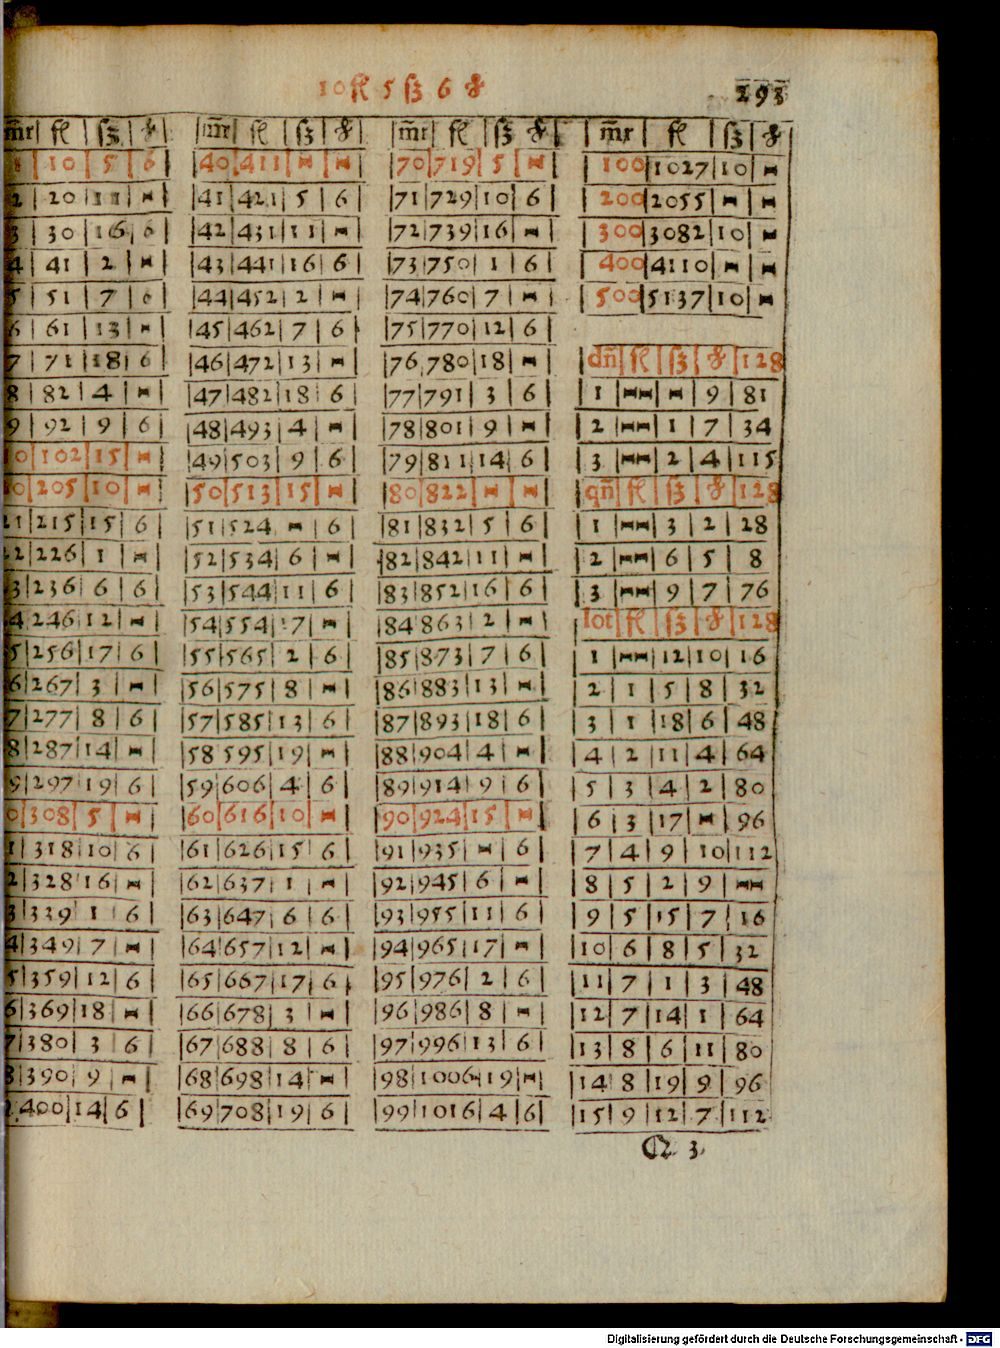 10 fl 5 ſʒ 6 ₰
293
mr fl ſʒ ₰
1 10 5 6
2 20 11 -
3 30 16 6
4 41 2 -
5 51 7 6
6 61 13 -
7 71 18 6
8 82 4 -
9 92 9 6
10 102 15 -
20 205 10 -
21 215 15 6
22 226 1 -
3 236 6 6
4 246 12 -
5 256 17 6
6 267 3 -
7 277 8 6
8 287 14 -
9 297 19 6
0 308 5 -
1 318 10 6
2 328 16 -
3 339 1 6
4 349 7 -
5 359 12 6
6 369 18 -
7 380 3 6
8 390 9 -
400 14 6
mr fl ſʒ ₰
40 411 - -
41 421 5 6
42 431 11 -
43 441 16 6
44 452 2 -
45 462 7 6
46 472 13 -
47 482 18 6
48 493 4 -
49 503 9 6
50 513 15 -
51 524 - 6
52 534 6 -
53 544 11 6
54 554 17 -
55 565 2 6
56 575 8 -
57 585 13 6
58 595 19 -
59 606 4 6
60 616 10 -
61 626 15 6
62 637 1 -
63 647 6 6
64 657 12 -
65 667 17 6
66 678 3 -
67 688 8 6
68 698 14 -
69 708 19 6
mr fl ſʒ ₰
70 719 5 -
71 729 10 6
72 739 16 -
73 750 1 6
74 760 7 -
75 770 12 6
76 780 18 -
77 791 3 6
78 801 9 -
79 811 14 6
80 822 - -
81 832 5 6
82 842 11 -
83 852 16 6
84 863 2 -
85 873 7 6
86 883 13 -
87 893 18 6
88 904 4 -
89 914 9 6
90 924 15 -
91 935 - 6
92 945 6 -
93 955 11 6
94 965 17 -
95 976 2 6
96 986 8 -
97 996 13 6
98 1006 19 -
99 1016 4 6
mr fl ſʒ ₰
100 1027 10 -
200 2055 - -
300 3082 10 -
400 4110 - -
500 5137 10 -
dn̄ fl ſʒ ₰ 128
1 -- - 9 81
2 -- 1 7 34
3 -- 2 4 115
qn̄ fl ſʒ ₰ 128
1 -- 3 2 28
2 -- 6 5 8
3 -- 9 7 76
lot fl ſʒ ₰ 128
1 -- 12 10 16
2 1 5 8 32
3 1 18 6 48
4 2 11 4 64
5 3 4 2 80
6 3 17 - 96
7 4 9 10 112
8 5 2 9 --
9 5 15 7 16
10 6 8 5 32
11 7 1 3 48
12 7 14 1 64
13 8 6 11 80
14 8 19 9 96
15 9 12 7 112
3
Digitalisierung gefördert durch die Deutsche Forschungsgemeinschaft - DFG